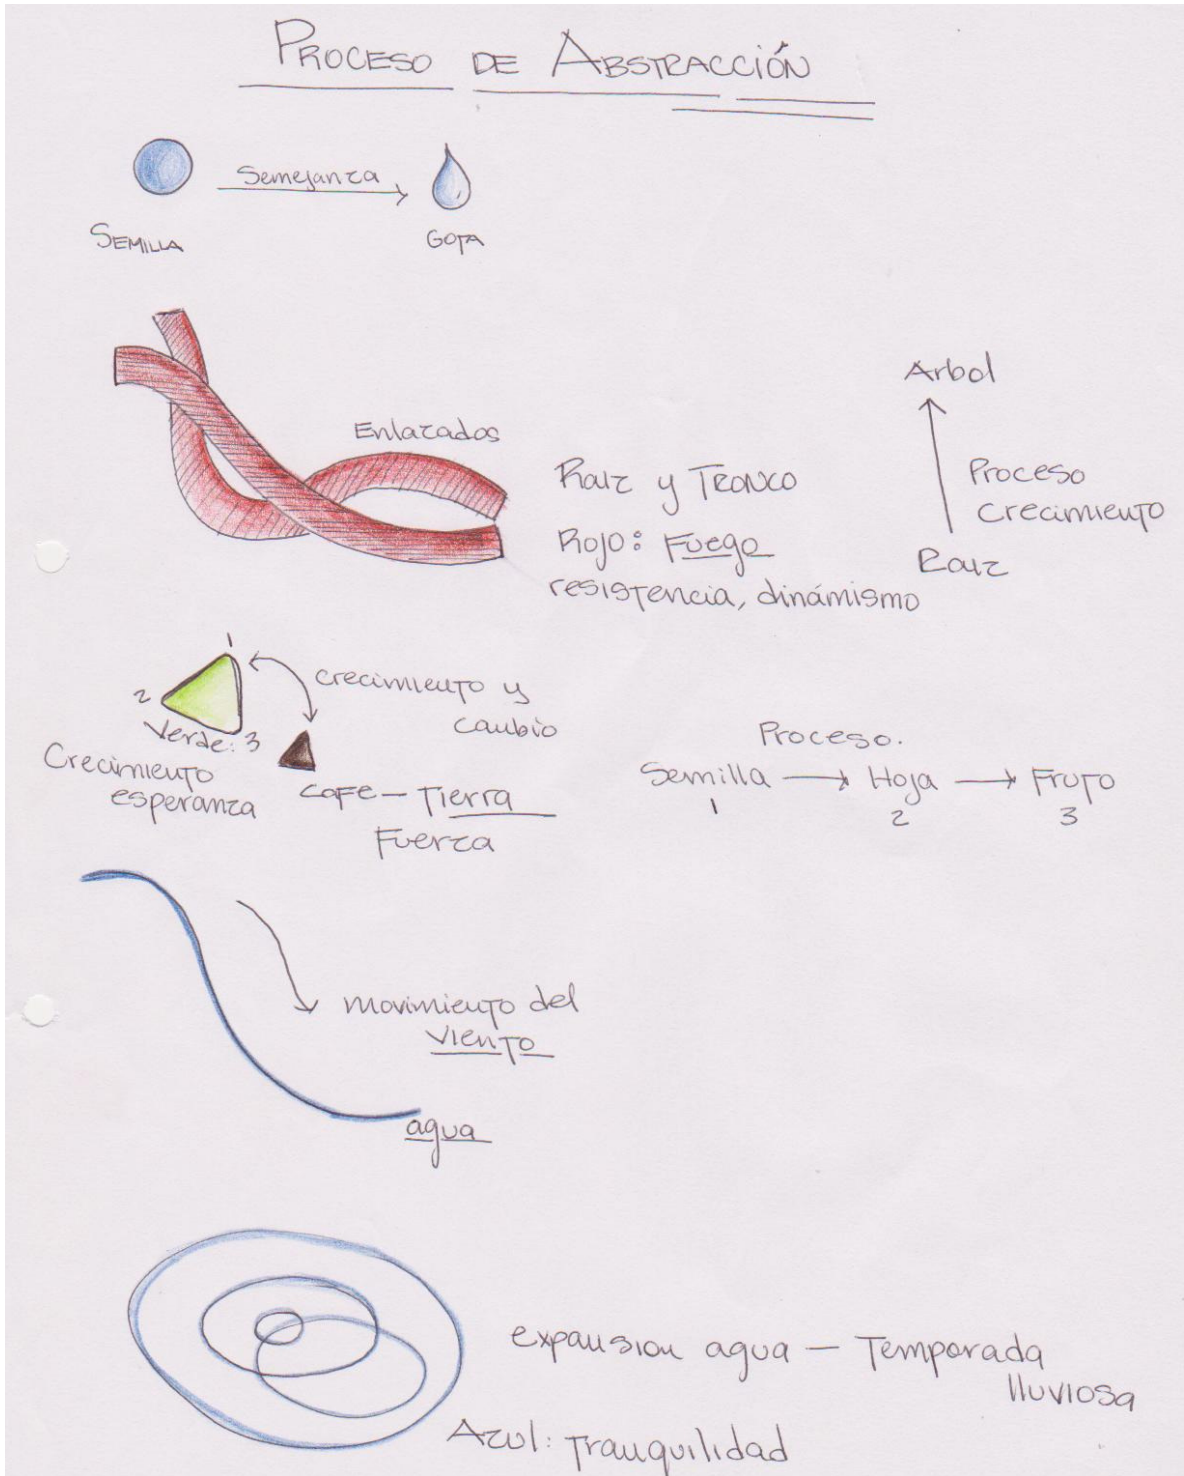 PROCESO DE ABSTRACCIÓN
Semejanza
SEMILLA
GOTA
Enlazados
Raiz y TRONCO
Rojo: Fuego
resistencia, dinámismo
Arbol
Proceso
crecimiento
Raiz
1
2
Verde: 3
Crecimiento
esperanza
crecimiento y
cambio
CAFE – Tierra
Fuerza
Proceso.
Semilla → Hoja → Fruto
1 2 3
movimiento del
viento
agua
expansion agua – Temporada
lluviosa
Azul: Tranquilidad